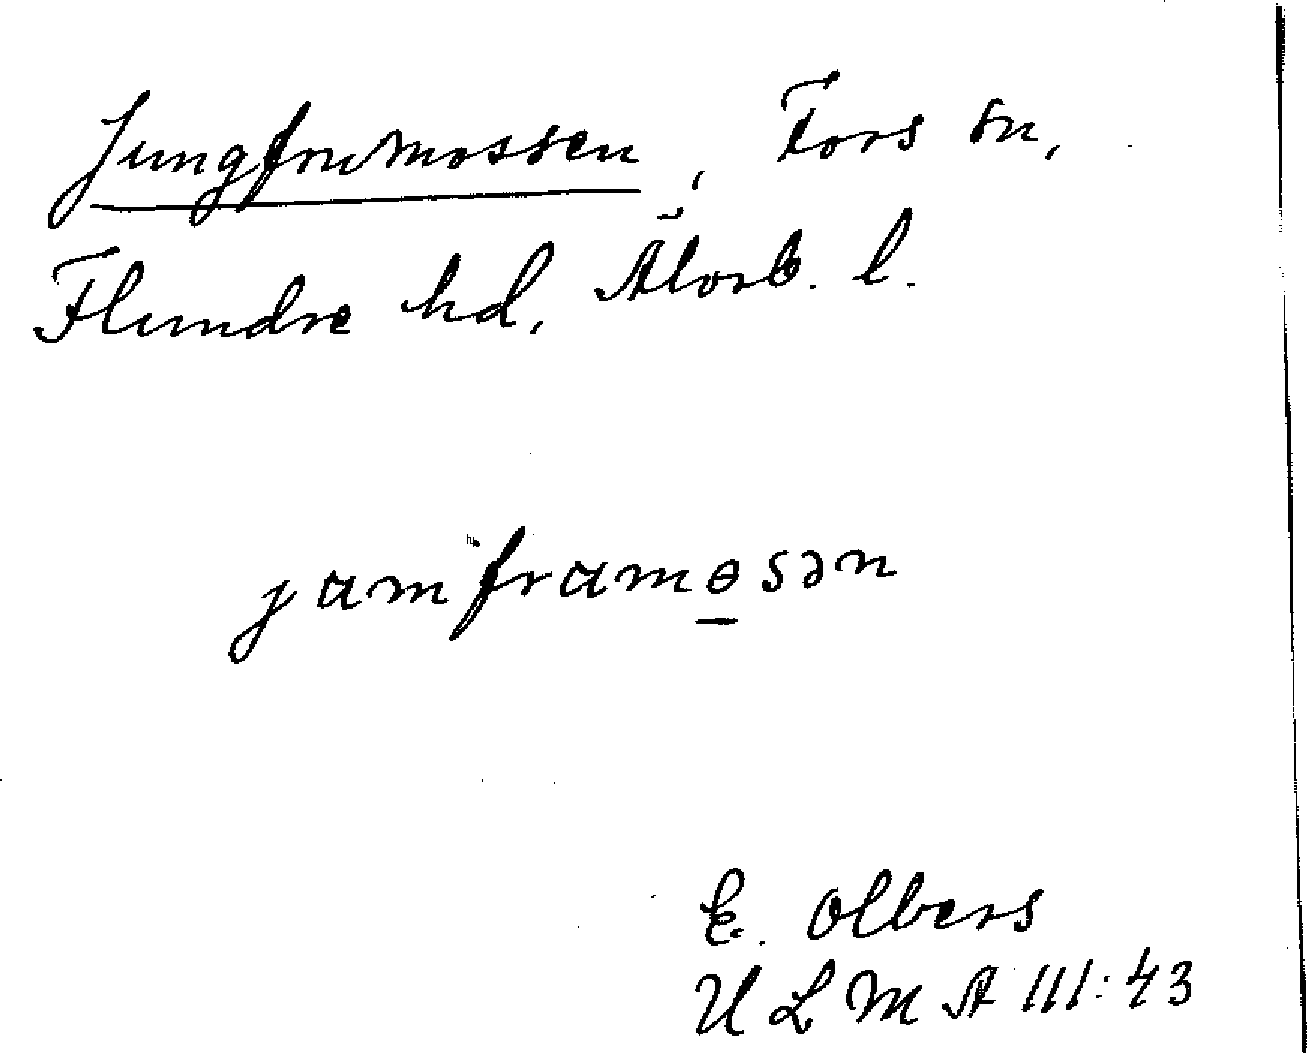 Jungfrumossen, Fors sn,
Flundre hd, Älvsb. l.
jamframɵsən
E. Olbers
ULMA 111:43